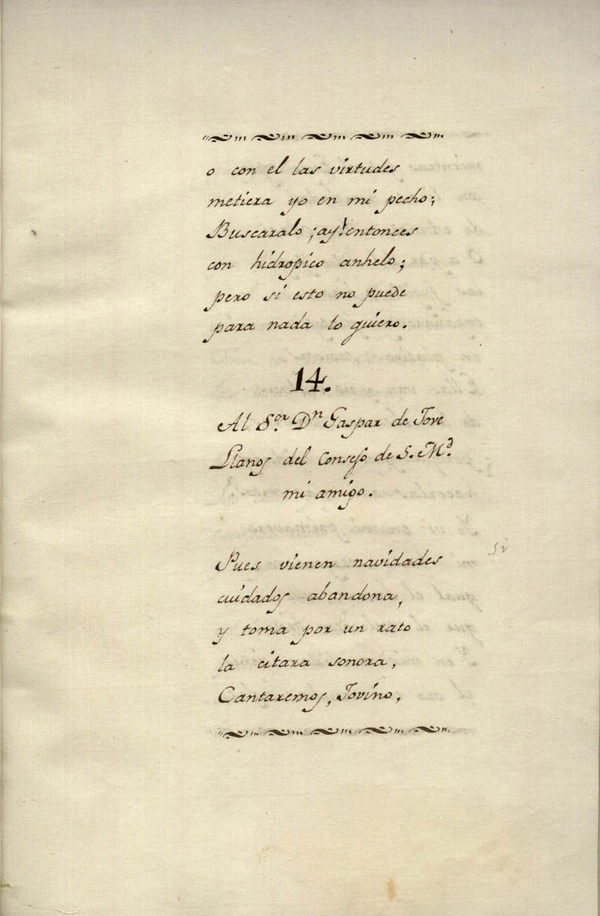 o con el las virtudes
metiera yo en mi pecho;
Buscaralo; ay! entonces
con hidropico anhelo;
pero si esto no puede
para nada lo quiero.
14.
Al S.or Dn Gaspar de Jove
Llanos del Consejo de S. M.d
mi amigo.
Pues vienen navidades
cuidados abandona,
y toma por un rato
la citara sonora,
Cantaremos, Jovino,